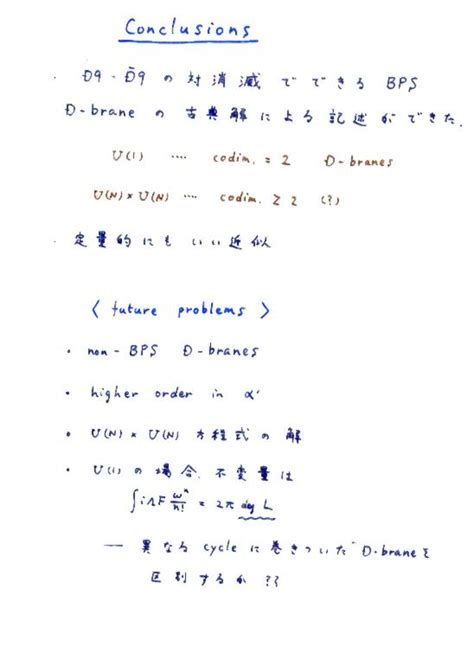 Conclusions
・ D9 - D̄9 の 対消滅 で できる BPS
D-brane の 古典解による 記述ができた.
U(1) ‥‥ codim. = 2 D-branes
U(N)×U(N) ‥‥ codim. ≥ 2 (?)
・ 定量的にも いい近似
〈 future problems 〉
・ non - BPS D-branes
・ higher order in α'
・ U(N) × U(N) 方程式の解
・ U(1) の 場合, 不変量は
∫iΛF ω^n/n! = 2π deg L
— 異なる cycle に巻きついた D-braneを
区別するか ??